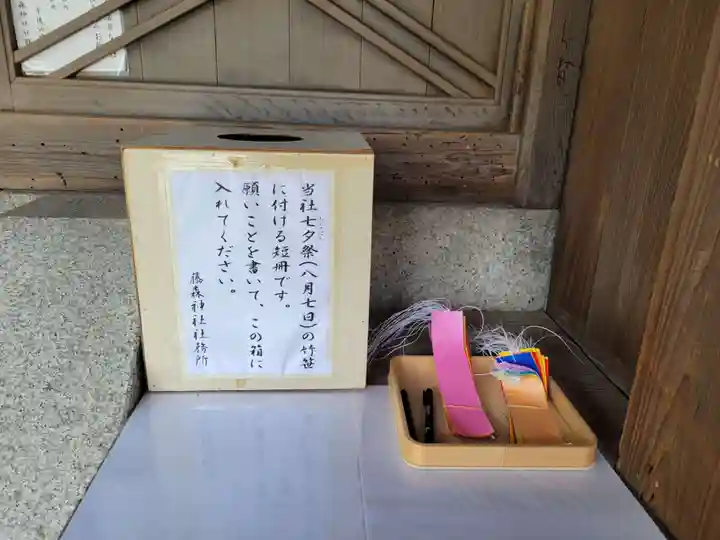 当社七夕祭(八月七日)の竹笹
に付ける短冊です。
願いことを書いて、この箱に
入れてください。
藤森神社社務所